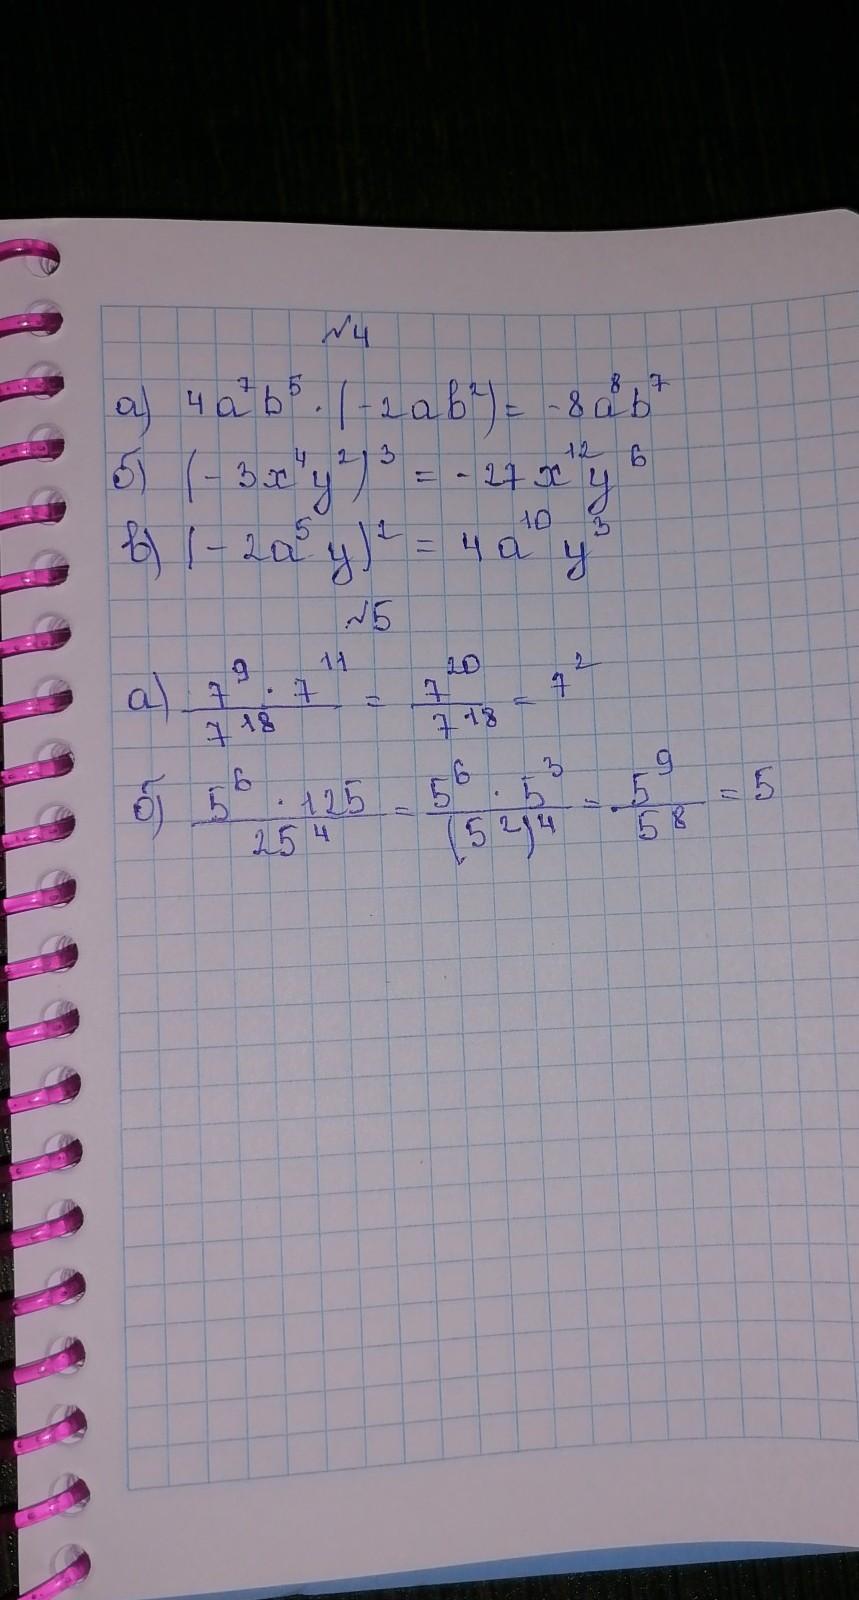 №4
а) 4a⁷b⁵ · (-2ab²) = -8a⁸b⁷
б) (-3x⁴y²)³ = -27x¹²y⁶
в) (-2a⁵y)² = 4a¹⁰y³
№5
а) 7⁹ · 7¹¹ / 7¹⁸ = 7²⁰ / 7¹⁸ = 7²
б) 5⁶ · 125 / 25⁴ = 5⁶ · 5³ / (5²)⁴ = 5⁹ / 5⁸ = 5